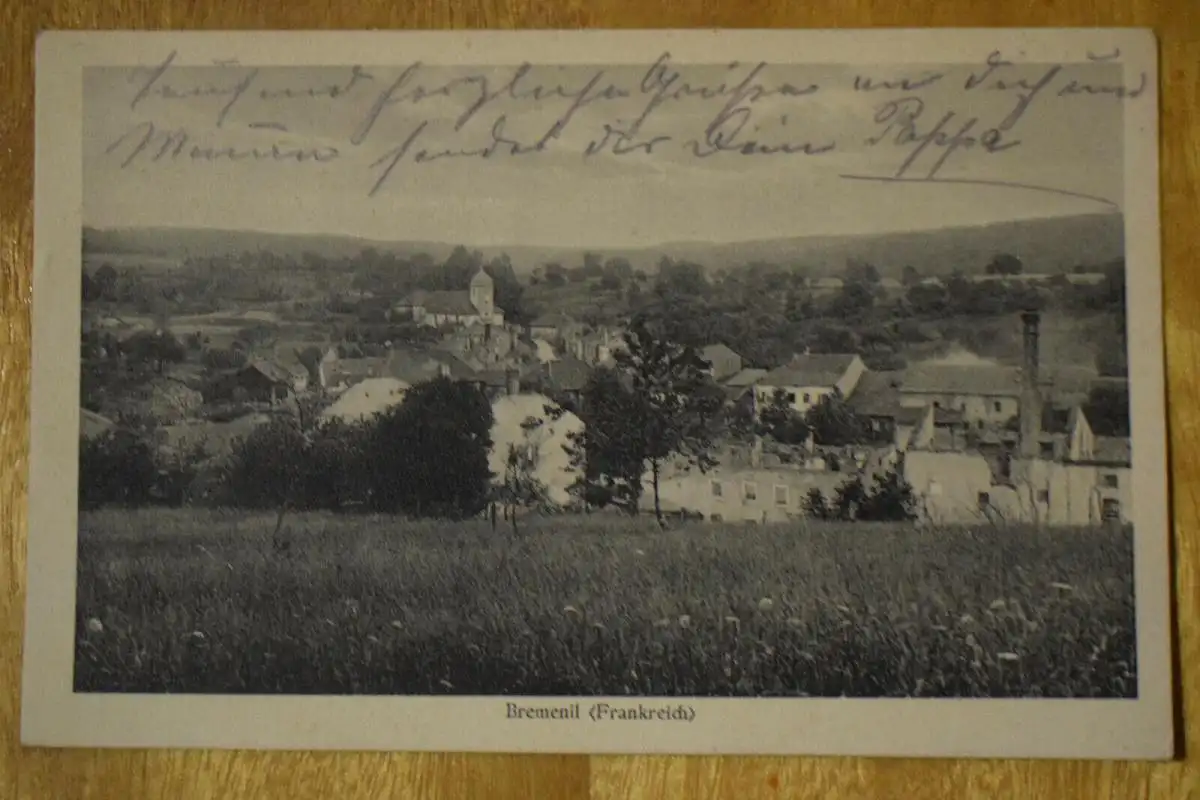 Tausend herzliche Grüße an Dich und
Mama sendet Dir Dein Pappa
Bremenil (Frankreich)